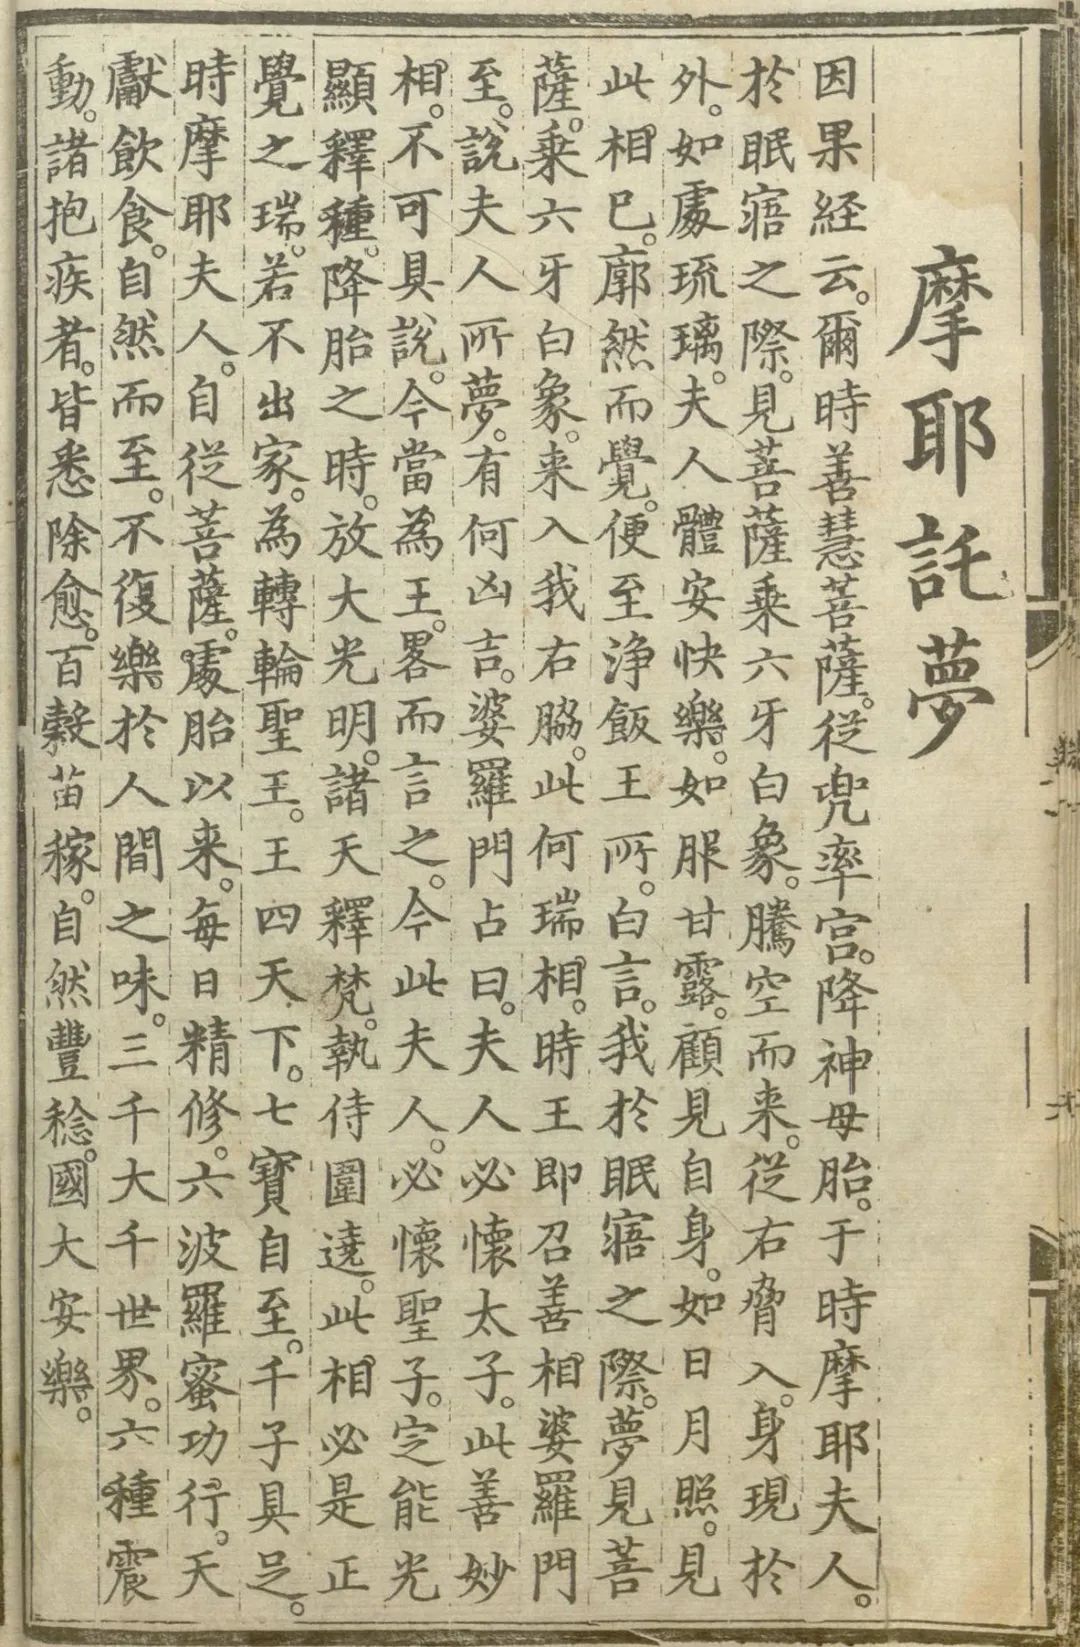 摩耶託夢
因果経云。爾時善慧菩薩。從兜率宮。降神母胎。于時摩耶夫人。
於眠寤之際。見菩薩乗六牙白象。騰空而来。從右脅入。身現於
外。如處琉璃。夫人體安快樂。如服甘露。顧見自身。如日月照。見
此相已。廓然而覺。便至淨飯王所。白言。我於眠寤之際。夢見菩
薩。乗六牙白象。来入我右脇。此何瑞相。時王即召善相婆羅門
至。說夫人所夢。有何凶吉。婆羅門占曰。夫人必懷太子。此善妙
相。不可具說。今當為王。畧而言之。今此夫人。必懷聖子。定能光
顯釋種。降胎之時。放大光明。諸天釋梵。執侍圍遶。此相必是正
覺之瑞。若不出家。為轉輪聖王。王四天下。七寶自至。千子具足。
時摩耶夫人。自從菩薩。處胎以来。每日精修。六波羅蜜功行。天
獻飲食。自然而至。不復樂於人間之味。三千大千世界。六種震
動。諸抱疾者。皆悉除愈。百穀苗稼。自然豐稔。國大安樂。